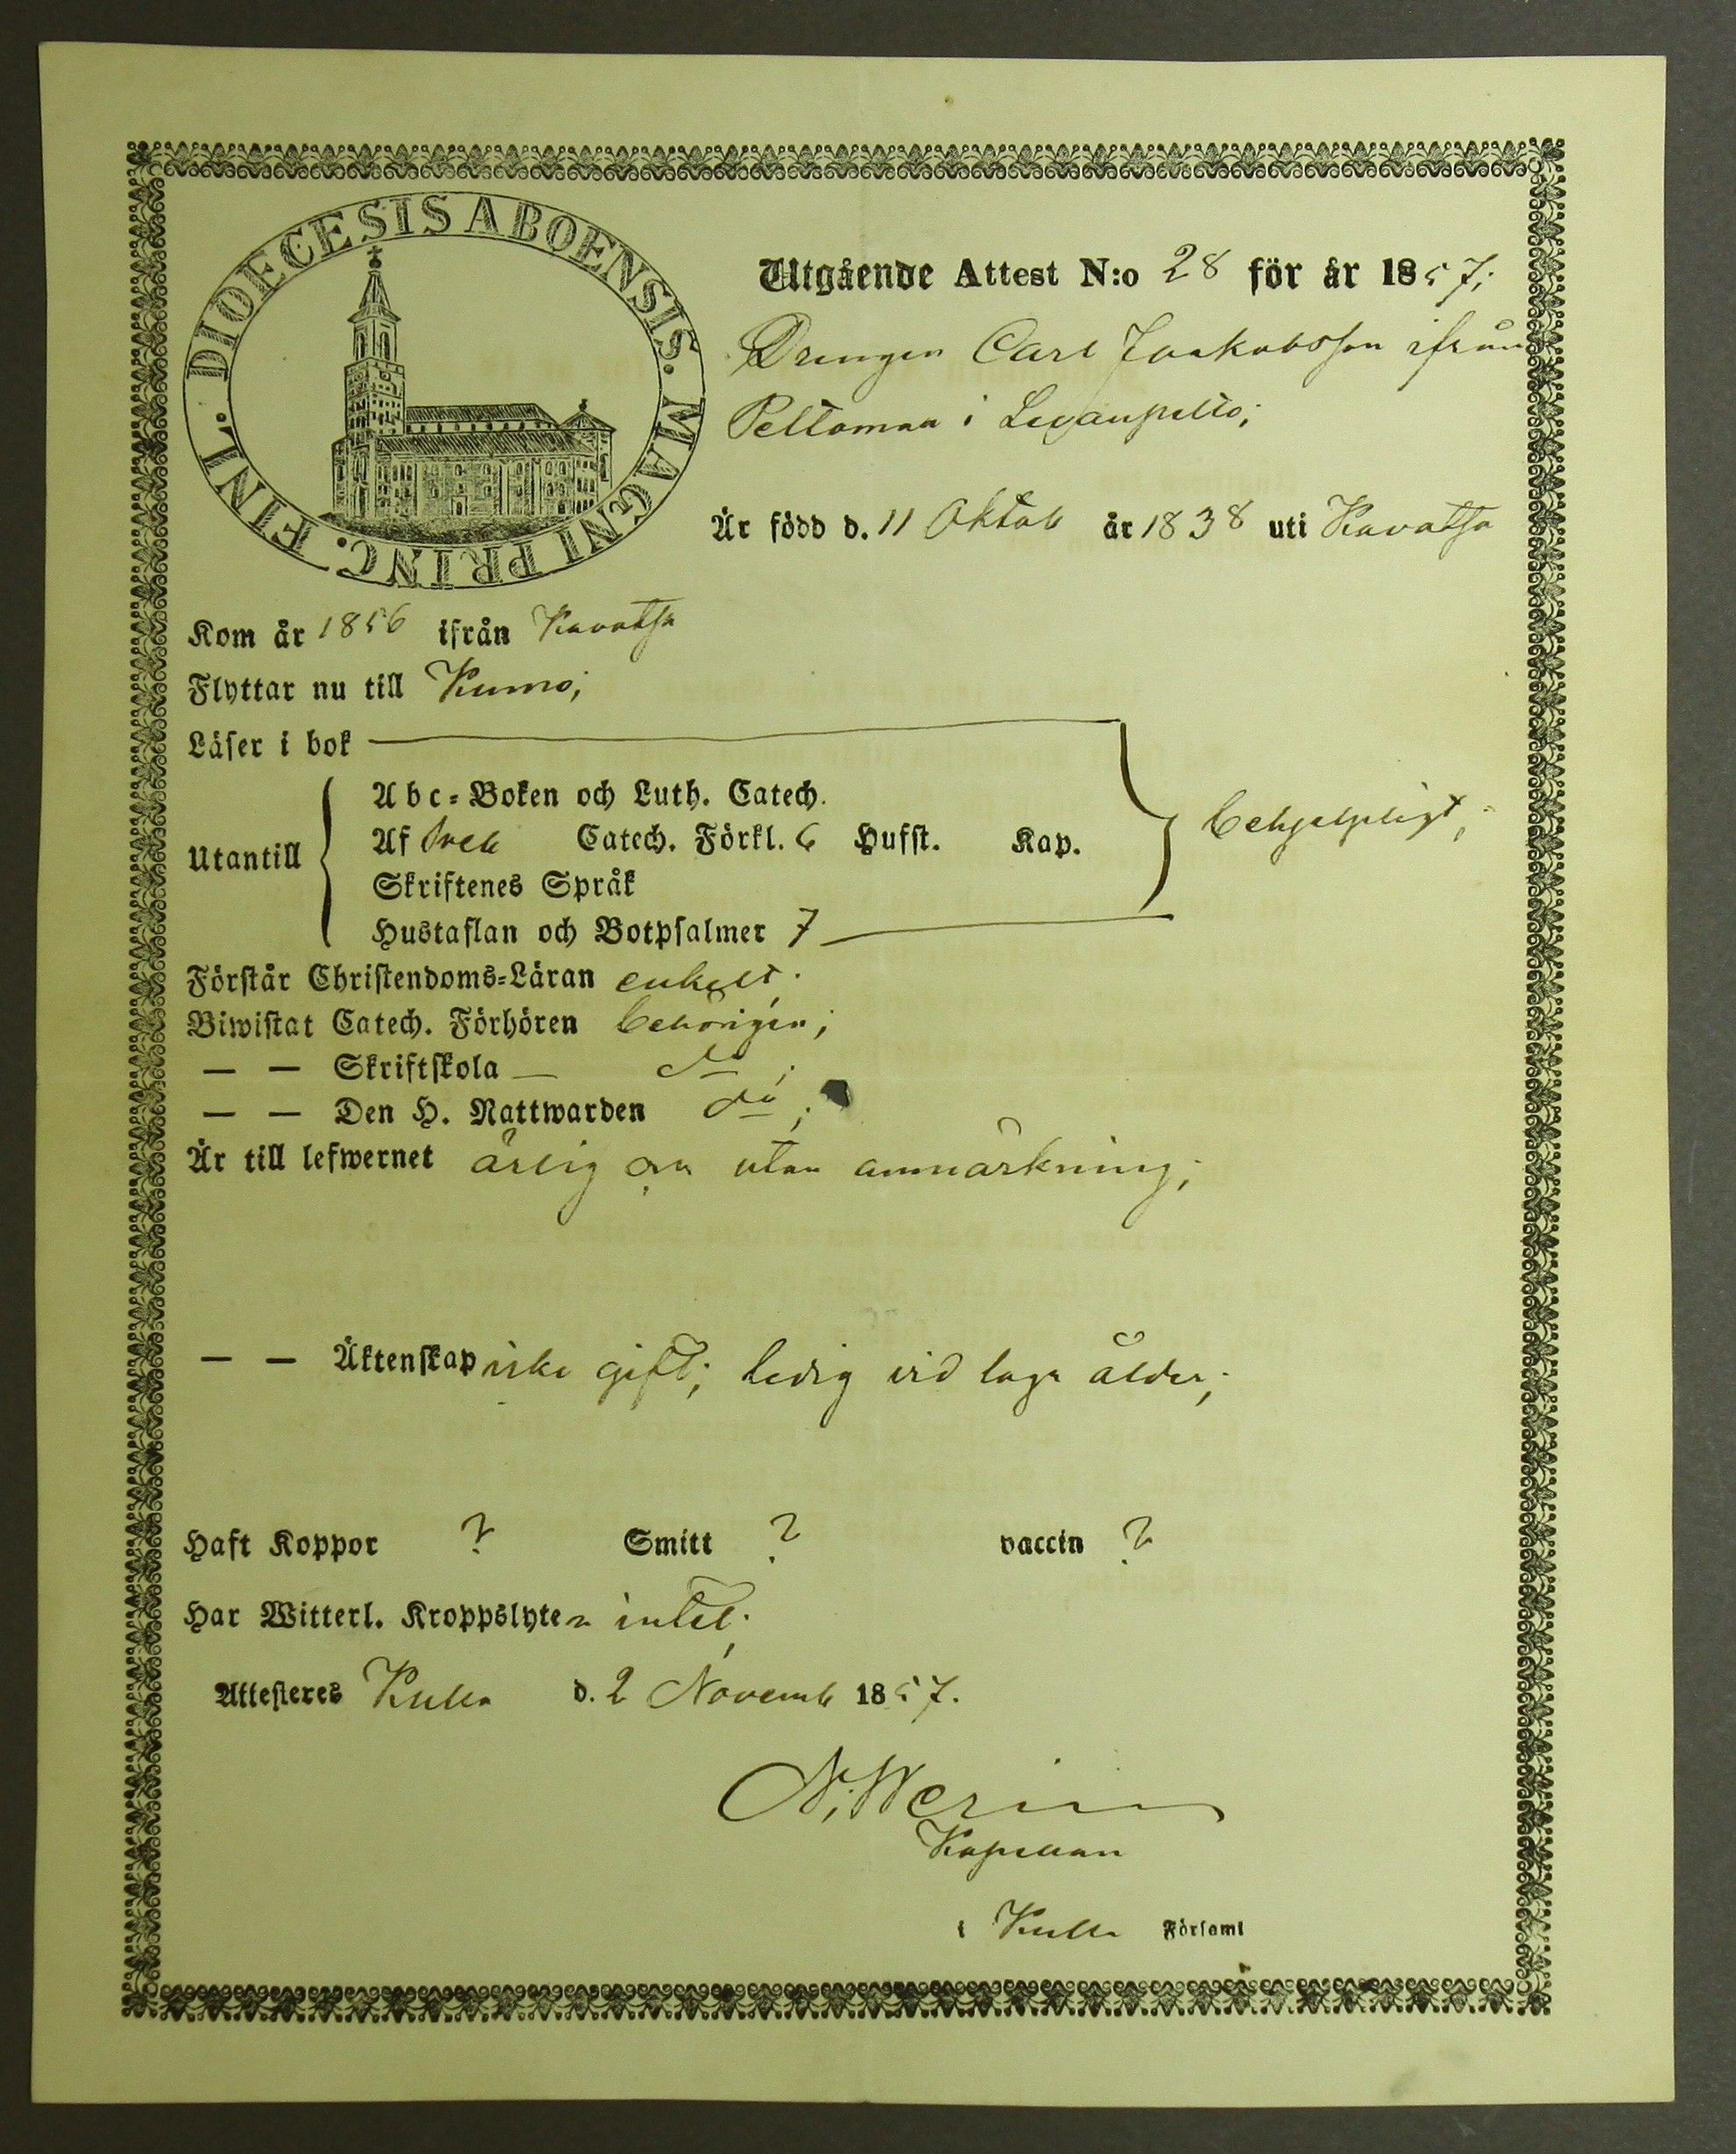 DIOECESIS ABOENSIS. MAGNI PRINC. FINL.
Utgående Attest N:o 28 för år 1857;
Drengen Carl Jaakobsson ifrån
Peltomaa i Levanpelto;
Är född d. 11 Oktob år 1838 uti Kavatsa
Kom år 1856 ifrån Kavatsa
Flyttar nu till Kumo;
Läser i bok
Abc-Boken och Luth. Catech.
Utantill Af Sveb Catech. Förkl. 6 Hufst. Kap. behjelpligt;
Skriftenes Språk
Hustaflan och Botpsalmer 7
Förstår Christendoms-Läran enkelt;
Biwistat Catech. Förhören behörigen;
— — Skriftskola — do;
— — Den H. Nattwarden do;
Är till lefwernet ärlig och utan anmärkning;
— — Äktenskap icke gift; ledig vid laga ålder;
Haft Koppor ? Smitt ? vaccin ?
Har Witterl. Kroppslyten intet;
Attesteres Kulla d. 2 Novemb 1857.
Kapellan
i Kulla Församl